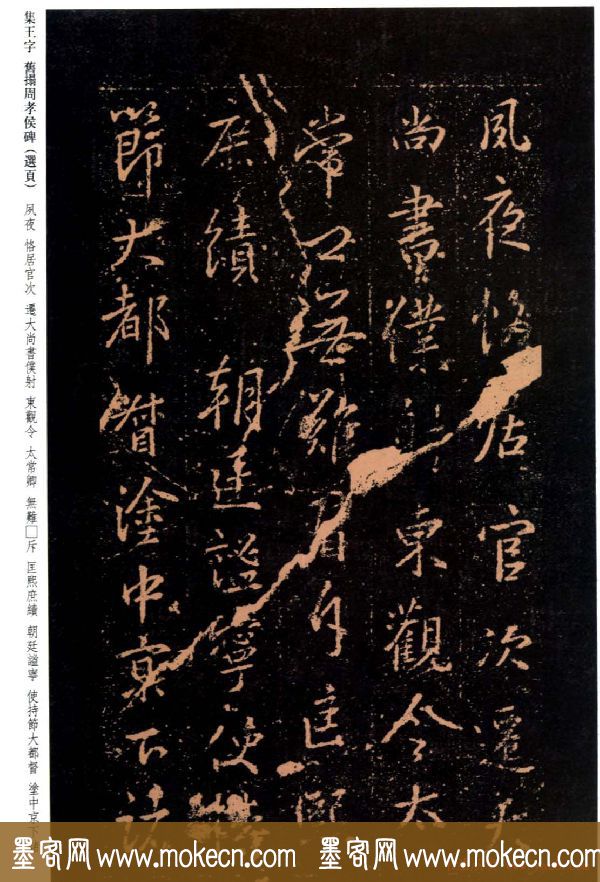 夙夜恪居官次遷大
尚書僕射東觀令太
常卿無難斥匡熙
庶績 朝廷謐寧使持
節大都督塗中京下諸
集王字 舊搨周孝侯碑（選頁） 夙夜 恪居官次 遷大尚書僕射 東觀令 太常卿 無難□斥 匡熙庶績 朝廷謐寧 使持節大都督 塗中京下
墨客网 www.mokecn.com 墨客网 www.mokecn.com